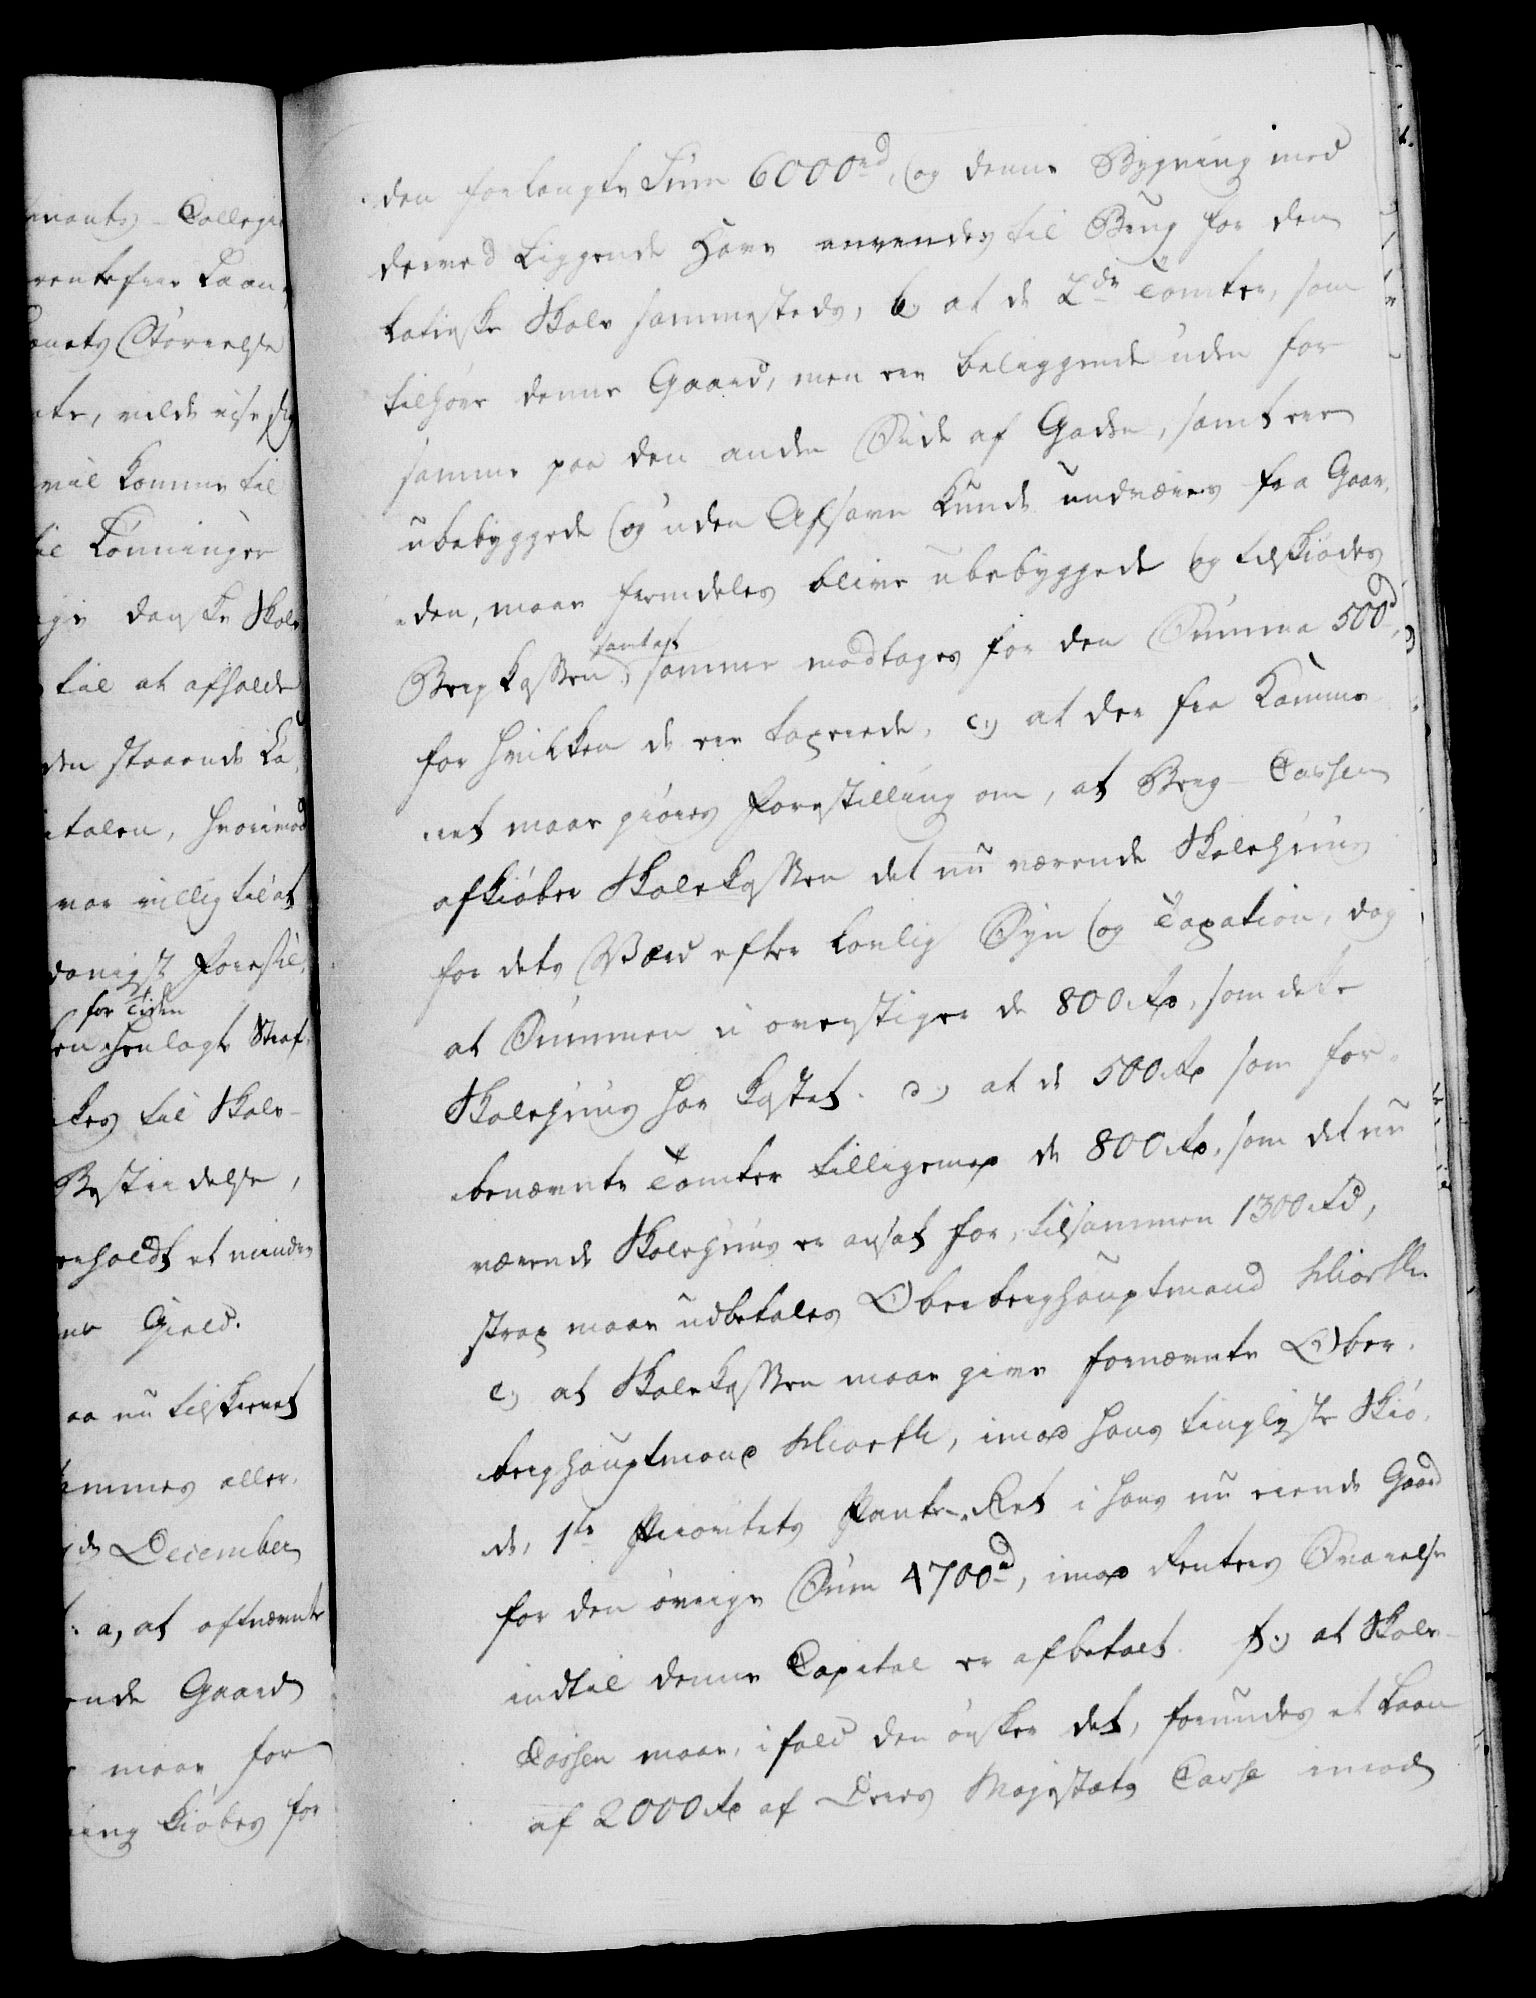 ments-Collegie
rentefrie Laan
onets Størrelse
ate, vilde vise sig
vil komme til
til Lønninger
ge danske Skole
til at afholde
den staaende Ca-
italen, hvorimod
var villig til at
danigst Forestil-
for Tiden
en henlagte Straf-
kes til Skole-
Bestridelse,
erholdt et mindre
ne Gield.
aa nu tilskrevet
emmes aller-
de December
: a, at oftnævnte
ende Gaard
maae for
ning kiøbes for
den forlangte Sum 6000rd, og denne Bygning med
derved liggende Have anvendes til Brug for den
latinske Skole sammesteds, b, at de 2de Tomter, som
tilhøre denne Gaard, men ere beliggende uden for
samme paa den anden Side af Gaden, samt ere
ubebyggede og uden Afsavn kunde undværes fra Gaar-
den, maae fremdeles blive ubebyggede og tilskiødes
Bergkassen samt at samme modtages for den Summa 500rd,
for hvilken de ere taxerede, c,) at der fra Kamme-
ret maae giøres Forestilling om, at Berg-Cassen
afkiøber Skolekassen det nu værende Skolehuus
for dets Værd efter lovlig Syn og Taxation, dog
at Summen ei overstiger de 800 Rd, som dette
Skolehuus har kostet. d,) at de 500 Rd som for-
benævnte Tomter tilligemed de 800 Rd, som det nu
værende Skolehuus er ansat for, tilsammen 1300 Rd,
strax maae udbetales Oberberghauptmand Hiorth.
e,) at Skolekassen maae give fornævnte Ober-
berghauptmand Hiorth, imod hans tinglyste Skiø-
de, 1te Prioritets Pante-Ret i hans nu eiende Gaard
for den øvrige Sum 4700rd, imod Renters Svarelse
indtil denne Capital er afbetalt. f,) at Skole-
Cassen maae, ifald den ønsker det, forundes et Laan
af 2000 Rd af Deres Majestæts Casse imod